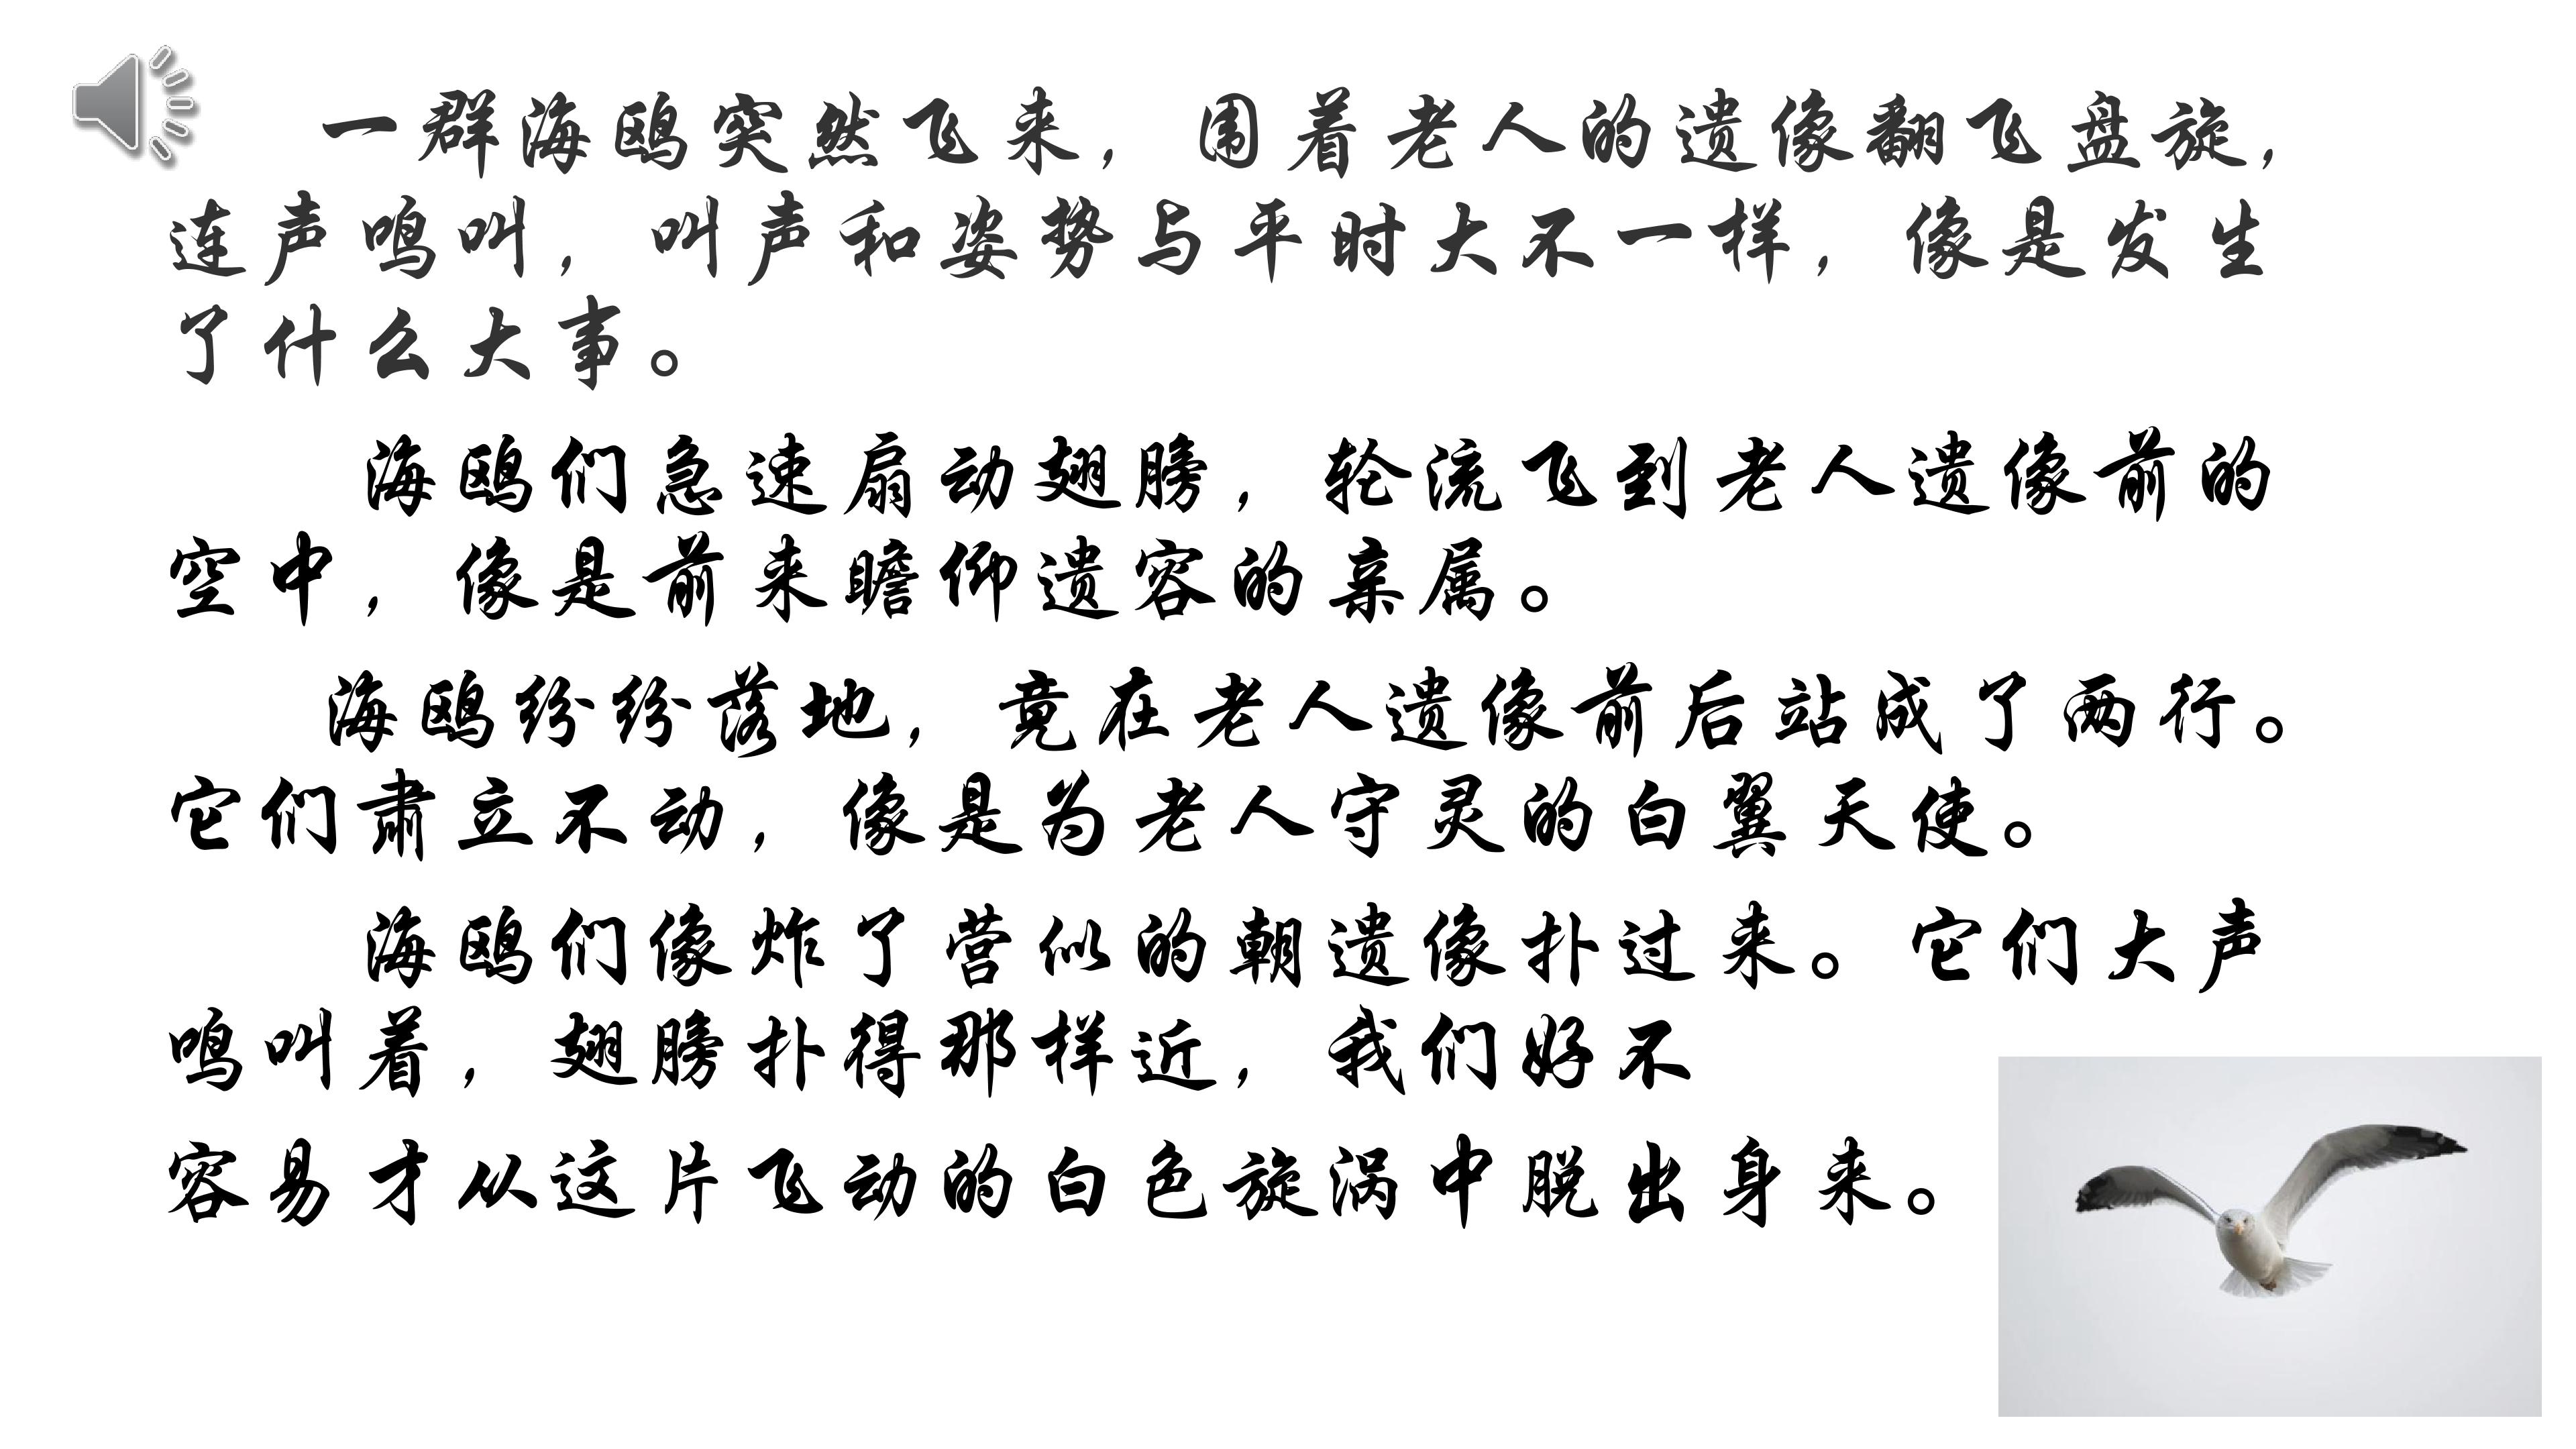 一群海鸥突然飞来，围着老人的遗像翻飞盘旋，
连声鸣叫，叫声和姿势与平时大不一样，像是发生
了什么大事。
海鸥们急速扇动翅膀，轮流飞到老人遗像前的
空中，像是前来瞻仰遗容的亲属。
海鸥纷纷落地，竟在老人遗像前后站成了两行。
它们肃立不动，像是为老人守灵的白翼天使。
海鸥们像炸了营似的朝遗像扑过来。它们大声
鸣叫着，翅膀扑得那样近，我们好不
容易才从这片飞动的白色旋涡中脱出身来。